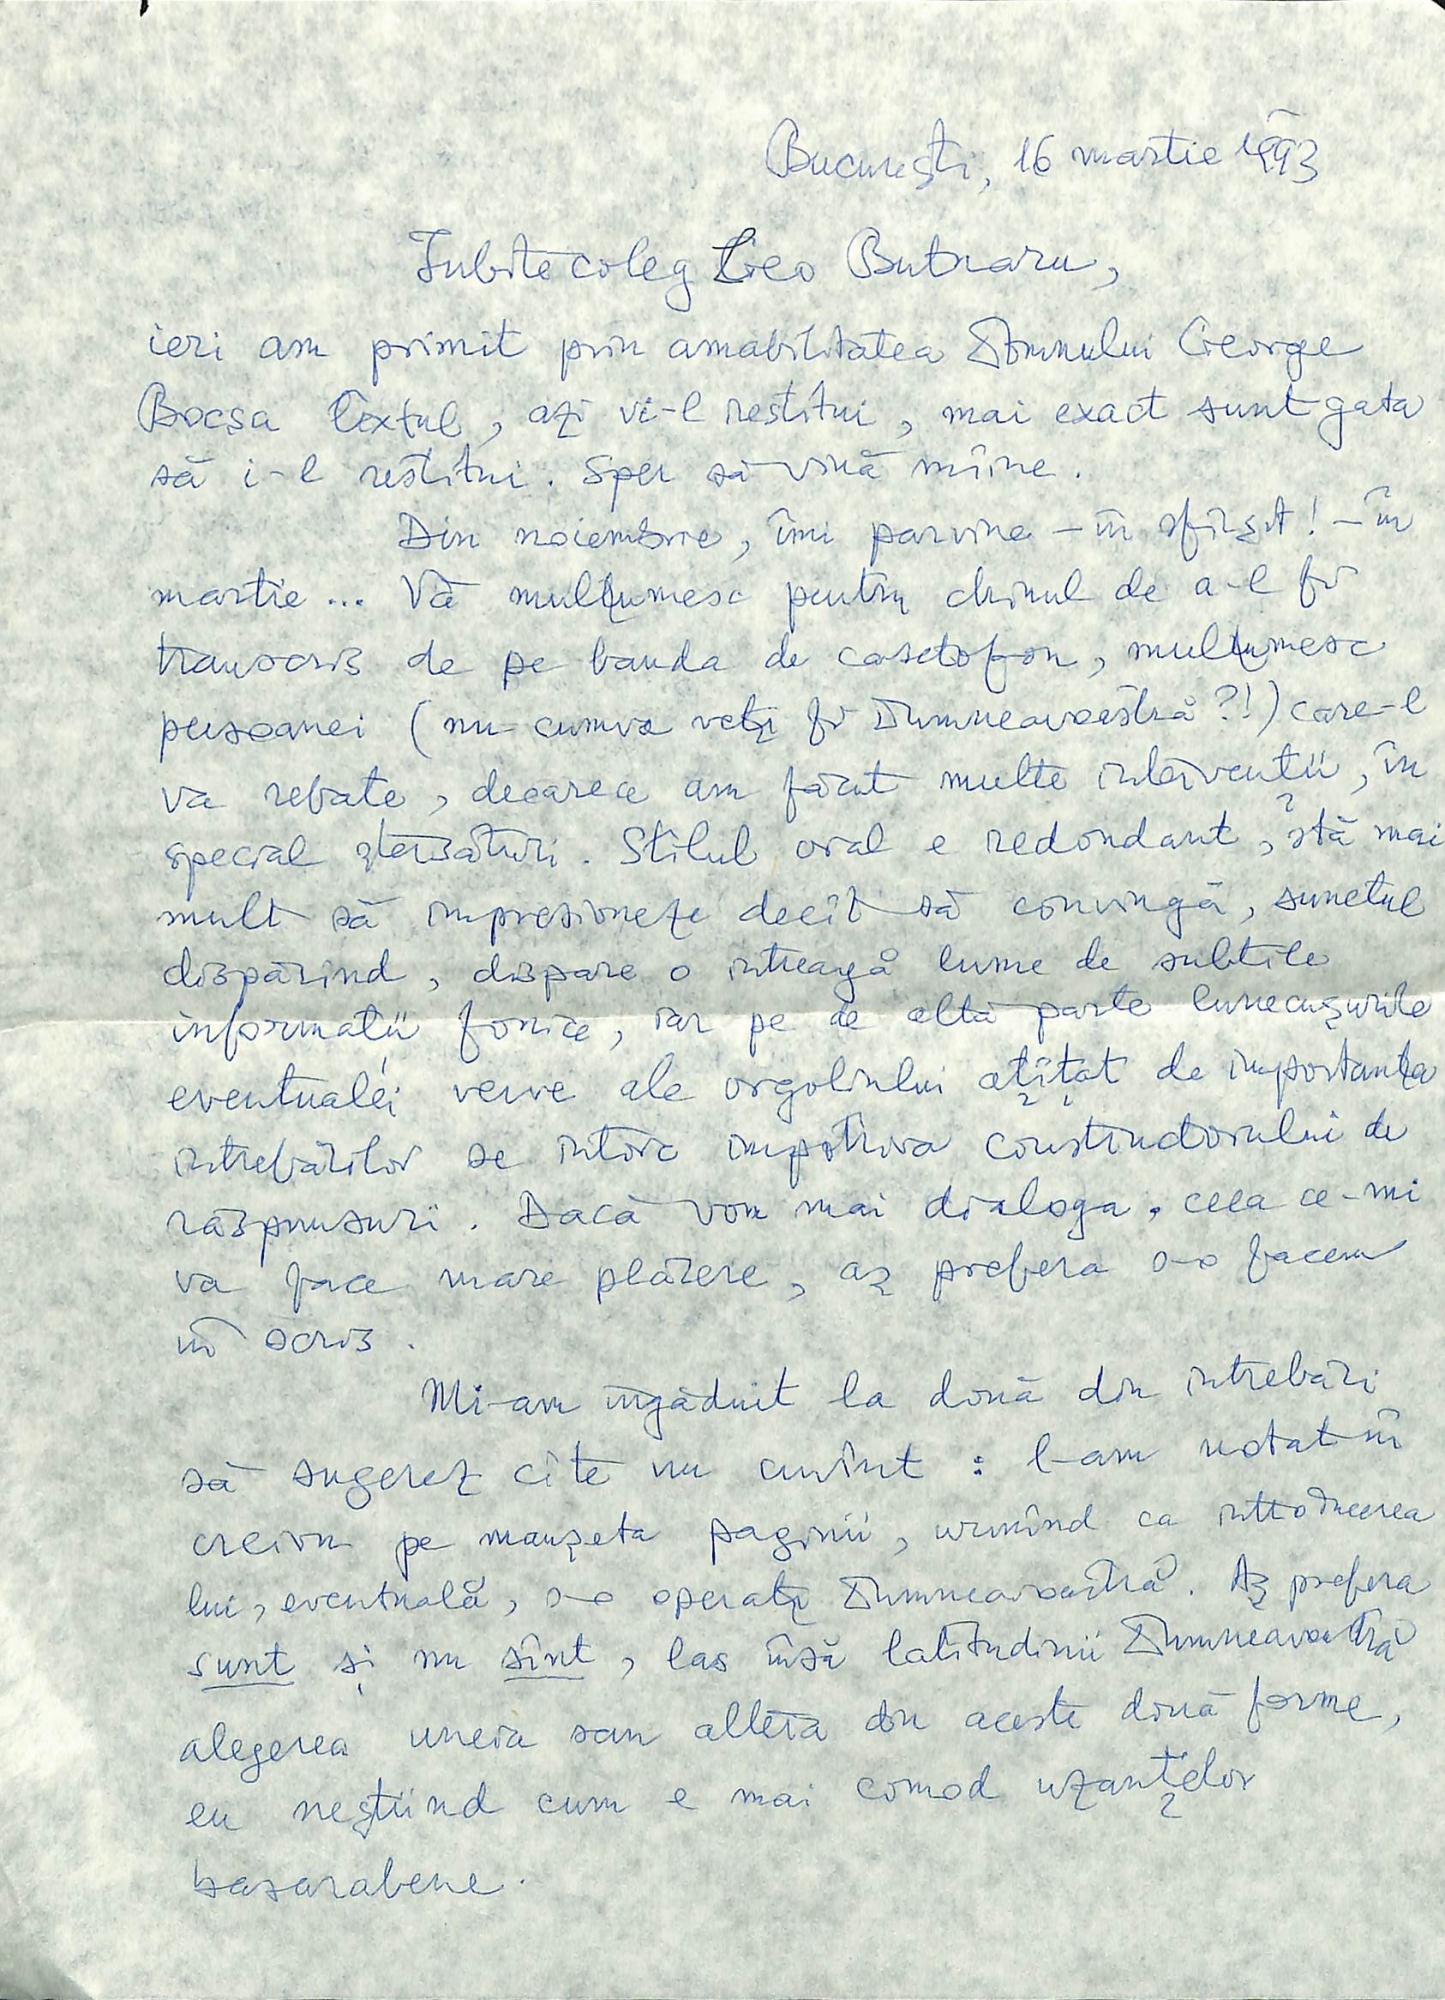 București, 16 martie 1993
Iubite coleg Leo Butnaru,
ieri am primit prin amabilitatea Domnului George
Bocșa textul, azi vi-l restitui, mai exact sunt gata
să i-l restitui. Sper să vină mîine.
Din noiembrie, îmi parvine – în sfîrșit! – în
martie... Vă mulțumesc pentru chinul de a-l fi
transcris de pe banda de casetofon, mulțumesc
persoanei (nu cumva veți fi Dumneavoastră?!) care-l
va rebate, deoarece am făcut multe intervenții, în
special ștersături. Stilul oral e redondant, stă mai
mult să impresioneze decît să convingă, sunetul
dispărînd, dispare o întreagă lume de subtile
informații fonice, iar pe de altă parte lunecușurile
eventualei verve ale orgoliului ațîțat de importanța
întrebărilor se întorc împotriva constructorului de
răspunsuri. Dacă vom mai dialoga, ceea ce-mi
va face mare plăcere, aș prefera s-o facem
în scris.
Mi-am îngăduit la două din întrebări
să sugerez cîte un cuvînt : l-am notat în
creion pe manșeta paginii, urmînd ca introducerea
lui, eventuală, s-o operați Dumneavoastră. Aș prefera
sunt și nu sînt, las însă latitudinii Dumneavoastră
alegerea uneia sau alteia din aceste două forme,
eu neștiind cum e mai comod uzanțelor
basarabene.